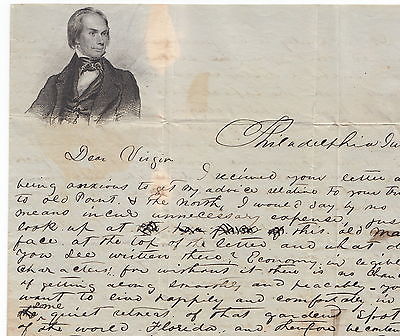 Philadelphia Ju
Dear Virgin
I recieved your letter a
being anxious to get my advice relation to your tr
to old Point. & the North, I would say by no
means incur unnecessary expense, jus
look up at of this old ma
face at the top of the letter and what do
you see written there? Economy, in legible
characters! for without it there is no chan
of getting along smoothly, and peacably - yo
want to live happily and comfortably, in
zone
the quiet retreat of that garden spot
of the world Florida, and